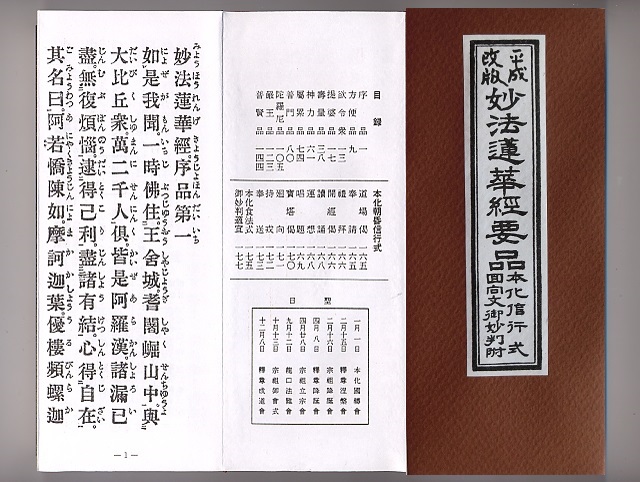 平成
改版
妙法蓮華經要品
本化信行式
回向文御妙判附
目錄
序品 一
方便品 九
欲令衆 一三
提婆品 一七
壽量品 三八
神力品 六一
屬累品 七四
普門品 八〇
陀羅尼品 一〇五
嚴王品 一二四
普賢品 一四四
本化朝昏信行式
道場偈 一六五
奉請 一六五
禮拜 一六六
開經偈 一六七
讀誦 一六八
運想 一六八
唱題 一六九
寶塔偈 一七〇
廻向 一七一
持戒 一七二
奉送 一七三
本化食法式 一七五
御妙判適宜 一七七
聖日
一月一日 本化國禱會
二月十五日 釋尊涅槃會
二月十六日 宗祖降誕會
四月八日 釋尊降誕會
四月廿八日 宗祖立宗會
九月十二日 龍口法難會
十月十三日 宗祖御會式
十二月八日 釋尊成道會
妙法蓮華經序品第一
如是我聞。一時佛住。王舍城耆闍崛山中。與
大比丘衆。萬二千人俱。皆是阿羅漢。諸漏已
盡。無復煩惱。逮得己利。盡諸有結。心得自在。
其名曰。阿若憍陳如。摩訶迦葉。優樓頻螺迦
— 1 —